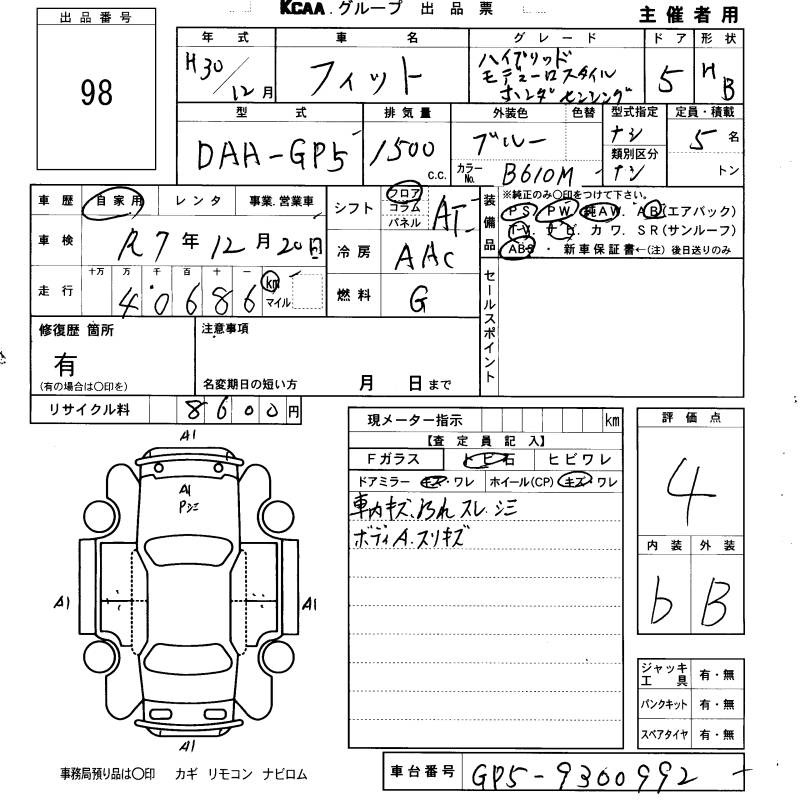 KCAA.グループ 出品票
主催者用
出品番号
98
年式 車名 グレード ドア 形状
H30/12月 フィット ハイブリッド
モデューロスタイル
ホンダセンシング
5 HB
型式 排気量 外装色 色替 型式指定 定員・積載
DAA-GP5 1500 c.c. ブルー ナシ 5名
カラーNo. B610M 類別区分 ナシ トン
車歴 自家用 レンタ 事業.営業車
車検 R7年12月20日
走行 十万 万 千 百 十 一
40686 km マイル
シフト フロア コラム パネル AT
冷房 AAC
燃料 G
装備品 ※純正のみ〇印をつけて下さい。
PS PW 純AW. AB(エアバック)
TV. ナビ. カワ. SR(サンルーフ)
ABS ・ 新車保証書←(注) 後日送りのみ
セールスポイント
修復歴 箇所
有
(有の場合は〇印を)
注意事項
名変期日の短い方 月 日まで
リサイクル料 8600円
現メーター指示 km
【査定員記入】
Fガラス トビ石 ヒビワレ
ドアミラー キズ・ワレ ホイール(CP) キズ・ワレ
車内キズ.汚れ スレ.シミ
ボディA.スリキズ
評価点
4
内装 外装
b B
A1
A1
Pシミ
A1 A1
A1
ジャッキ工具 有・無
パンクキット 有・無
スペアタイヤ 有・無
事務局預り品は〇印 カギ リモコン ナビロム
車台番号 GP5-9300992